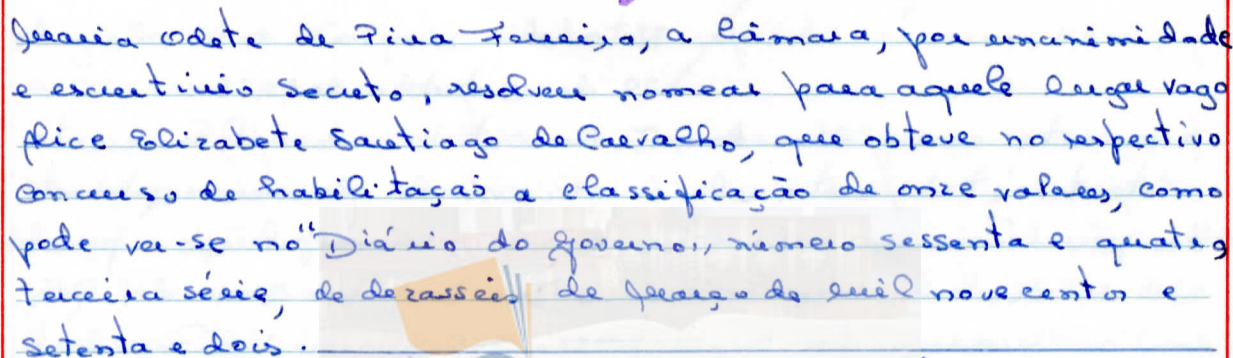 Maria Odete de Pina Ferreira, a Câmara, por unanimidade
e escrutínio secreto, resolveu nomear para aquele lugar vago
Alice Elizabete Santiago de Carvalho, que obteve no respectivo
concurso de habilitação a classificação de onze valores, como
pode ver-se no "Diário do Governo,, número sessenta e quatro,
terceira série, de dezasseis de Março de mil novecentos e
setenta e dois.